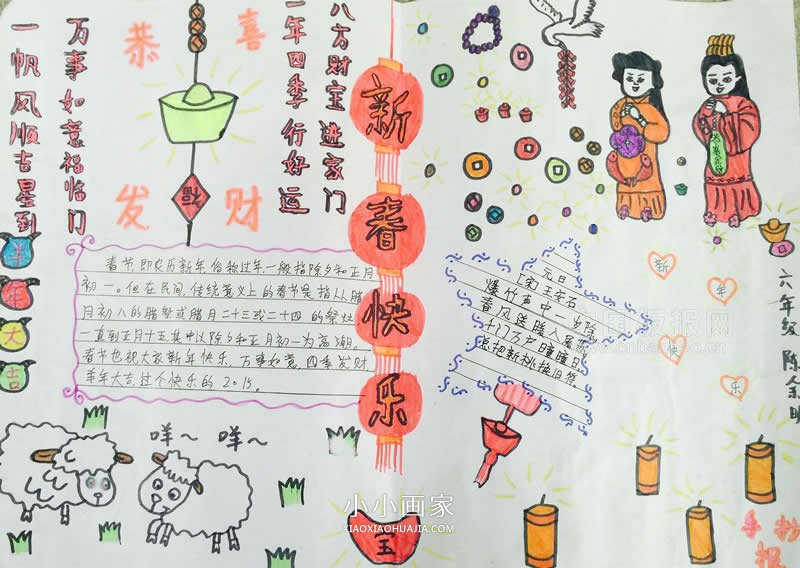 万事如意福临门
一帆风顺吉星到
恭喜
发财
福
八方财宝进家门
一年四季行好运
新春快乐
羊年大吉
春节,即农历新年,俗称过年,一般指除夕和正月
初一。但在民间,传统意义上的春节是指从腊
月初八的腊祭或腊月二十三或二十四的祭灶
一直到正月十五,其中以除夕和正月初一为高潮。
春节也祝大家新年快乐,万事如意,四季发财,
羊年大吉,过个快乐的2015。
元日
[宋]王安石
爆竹声中一岁除
春风送暖入屠苏
千门万户曈曈日
总把新桃换旧符。
新
年
快
乐
六年级
咩~咩~
宝
手抄报
小小画家
XIAOXIAOHUAJIA.COM